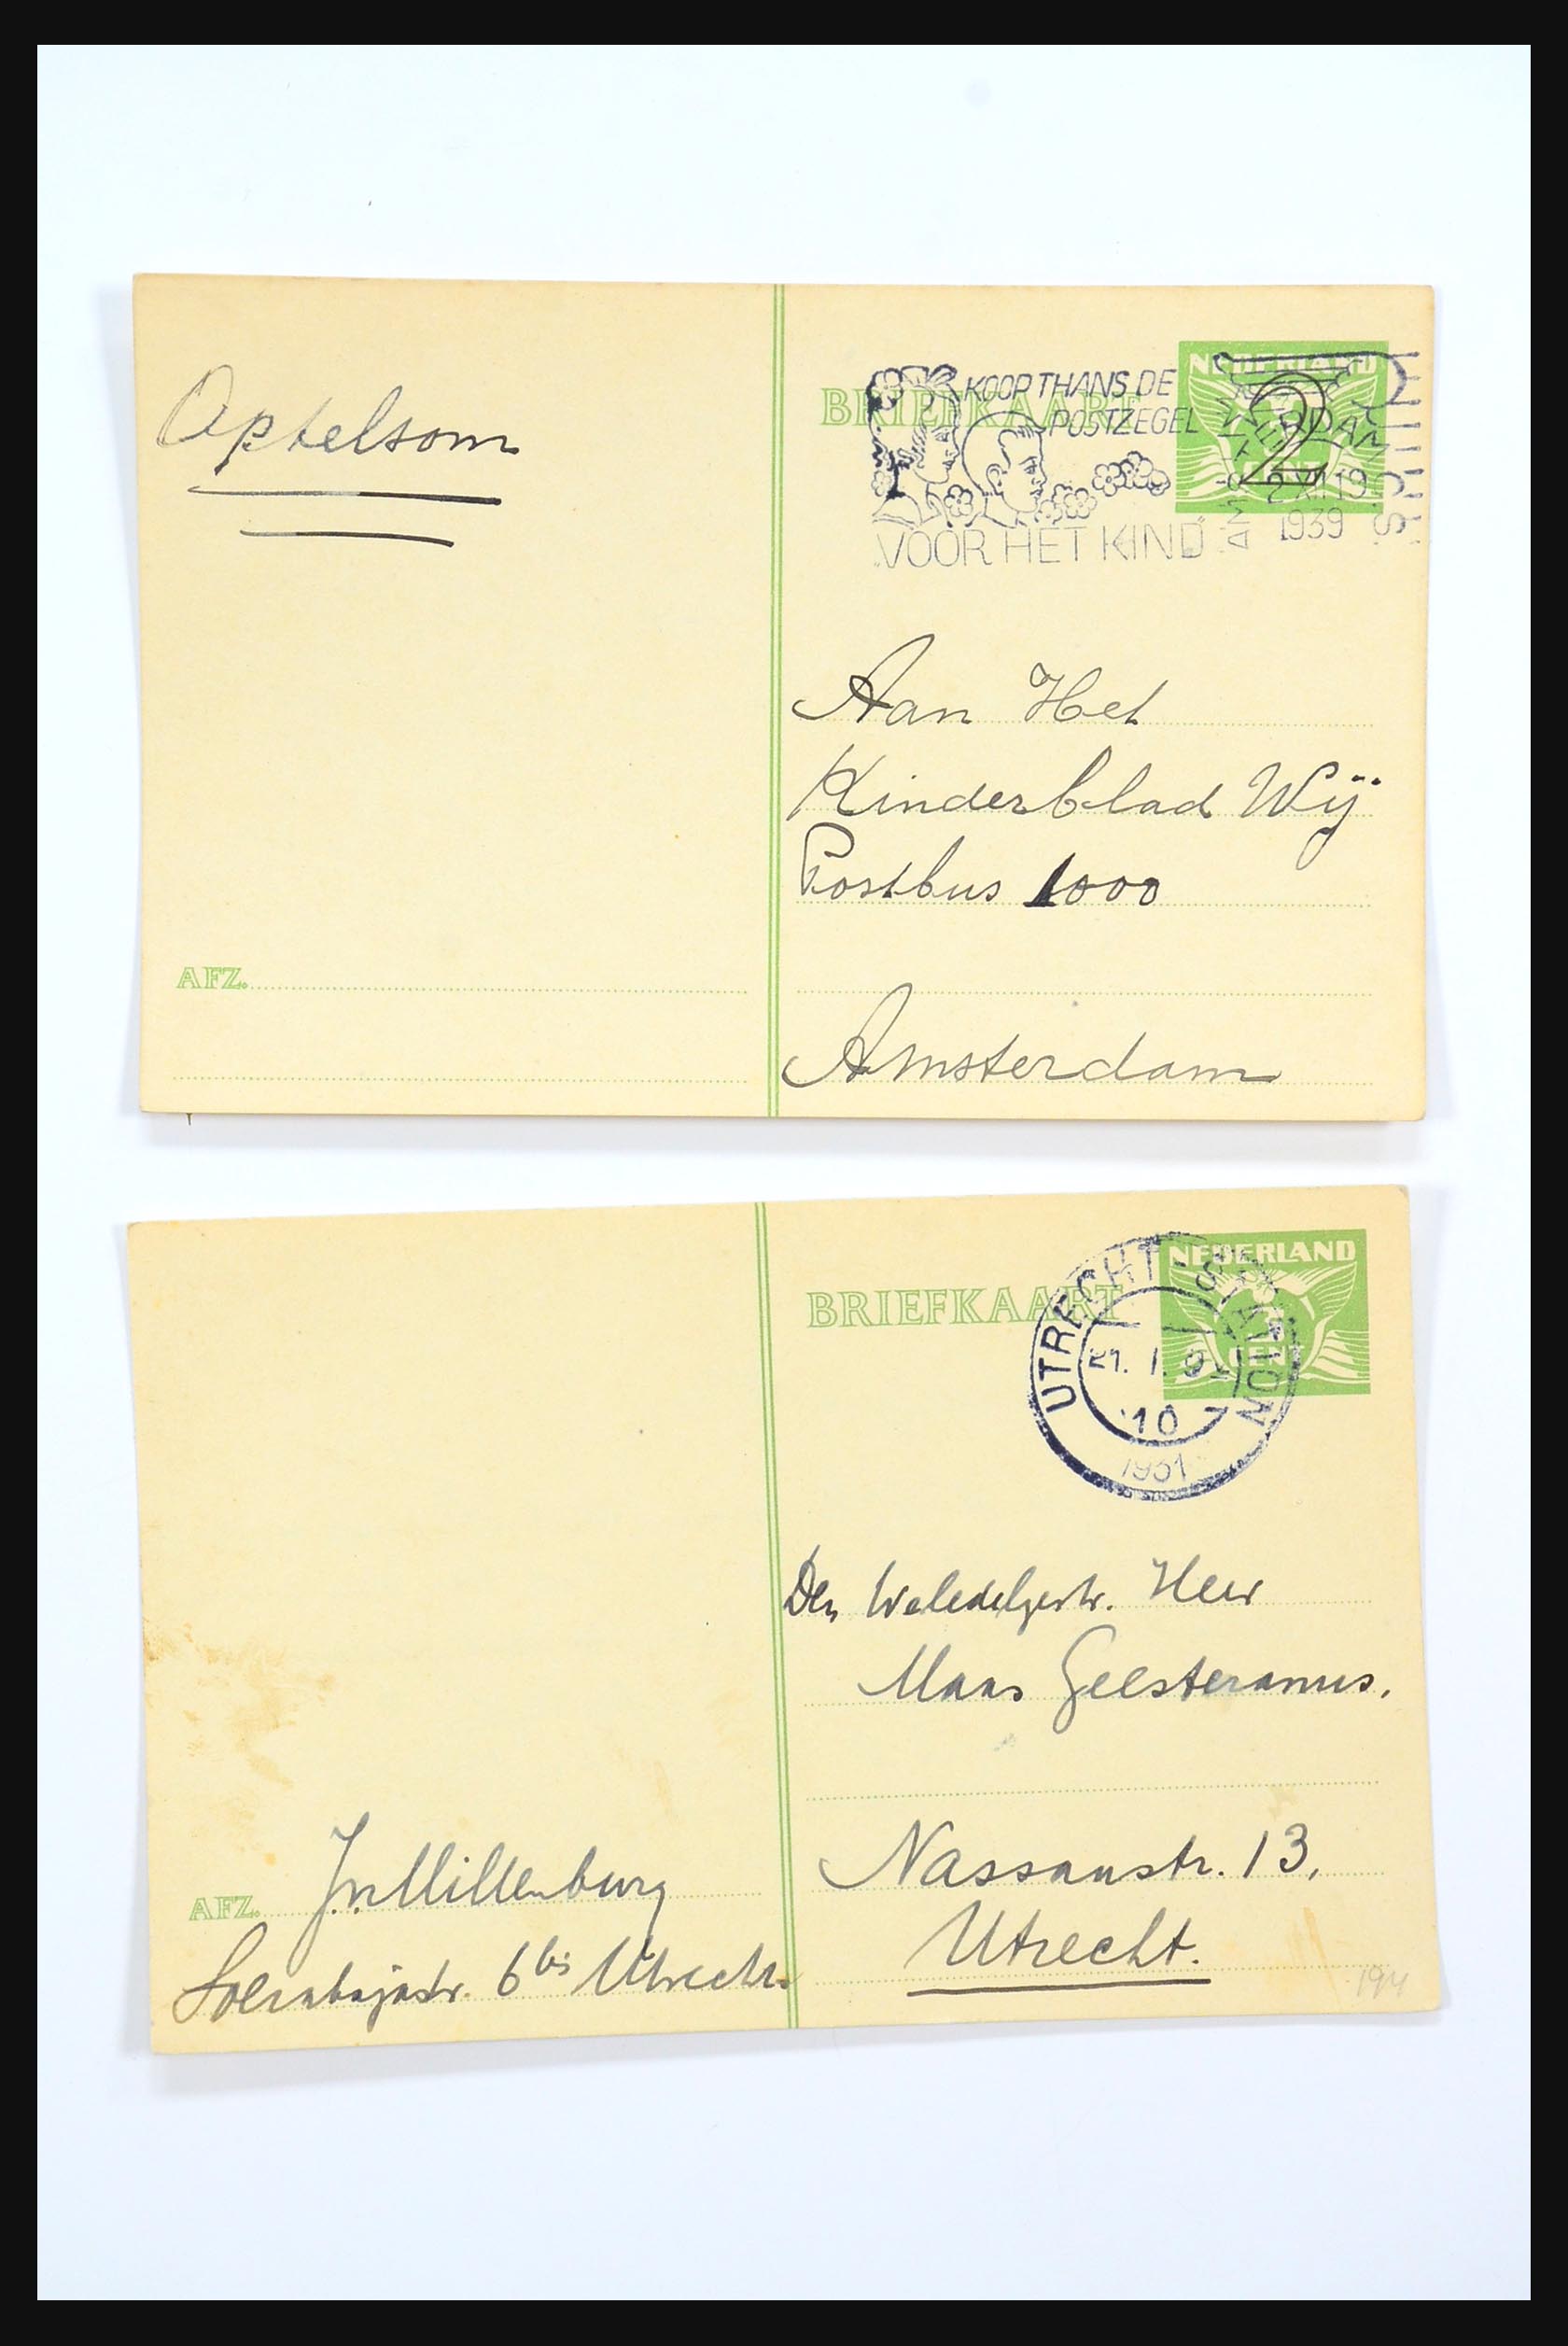 Optelsom
BRIEFKAART
NEDERLAND
2
KOOP THANS DE
POSTZEGEL
"VOOR HET KIND"
AMSTERDAM
2 XII 19
1939
Aan Het
Kinderblad Wij
Postbus 1000
Amsterdam
AFZ.
BRIEFKAART
NEDERLAND
CENT
UTRECHT-STATION
10
1931
Den Weledelgestr. Heer
Maas Geesteranus.
Nassaustr. 13.
Utrecht.
AFZ. J.v. Millenburg
Soerabajastr. 6bis Utrecht.
194